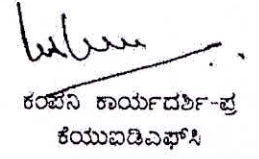 ಕಂಪನಿ ಕಾರ್ಯದರ್ಶಿ-ಪ್ರ
ಕೆಯುಐಡಿಎಫ್‌ಸಿ